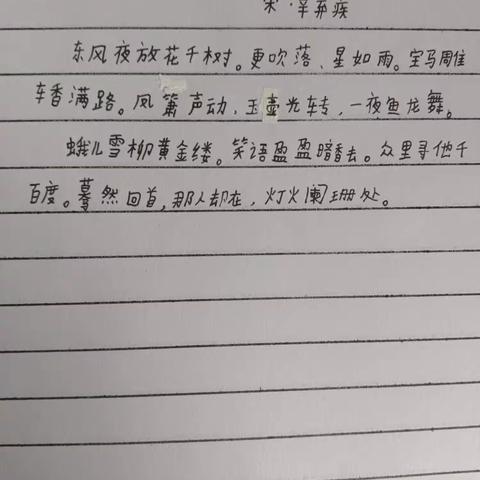 宋·辛弃疾
东风夜放花千树。更吹落、星如雨。宝马周隹
车香满路。凤箫声动,玉壶光转,一夜鱼龙舞。
蛾儿雪柳黄金缕。笑语盈盈暗香去。众里寻他千
百度。蓦然回首,那人却在,灯火阑珊处。